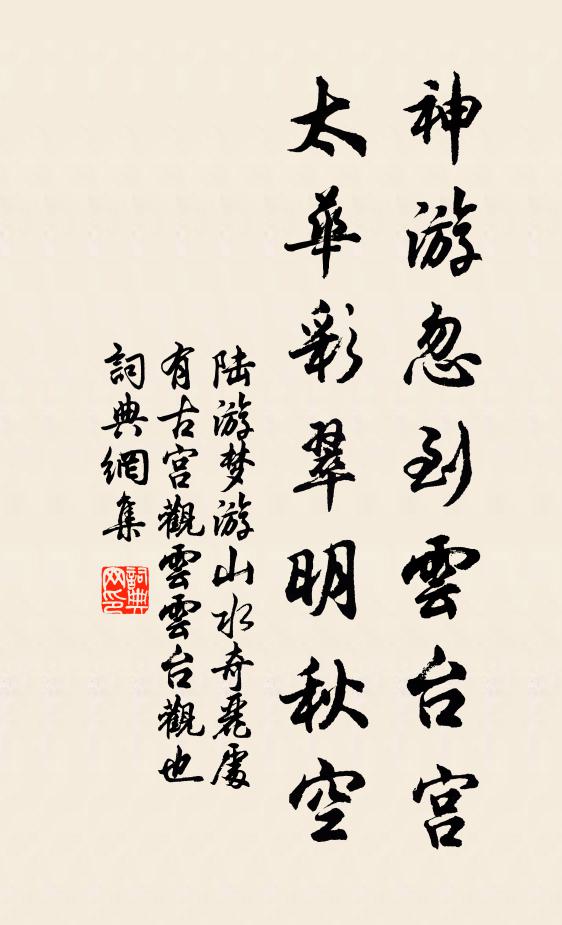 神游忽到雲台宫
太華彩翠明秋空
陆游梦游山水奇麗處
有古宫觀雲雲台觀也
詞典網集
詞典
网印